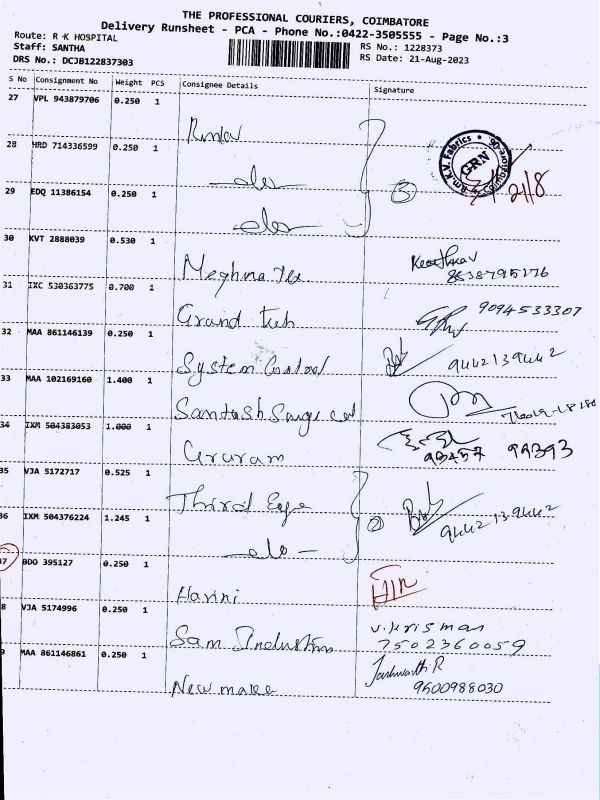 THE PROFESSIONAL COURIERS, COIMBATORE
Delivery Runsheet - PCA - Phone No.:0422-3505555 - Page No.:3
Route: R K HOSPITAL
RS No.: 1228373
Staff: SANTHA
RS Date: 21-Aug-2023
DRS No.: DCJB122837303
S No Consignment No Weight PCS Consignee Details Signature
27 VPL 943879706 0.250 1
28 HRD 714336599 0.250 1
GRN
21/8
29 EDQ 11386154 0.250 1
3
30 KVT 2888039 0.530 1 Meghna Tex
31 IXC 530363775 0.700 1 Grand tech 9094533307
32 MAA 861146139 0.250 1 System Control 9442139442
33 MAA 102169160 1.400 1 Santosh Surgical
34 IXM 504383053 1.000 1 93457 94393
35 VJA 5172717 0.525 1 Third Eye
36 IXM 504376224 1.245 1 do 2 9442139442
37 BDO 395127 0.250 1 Harini
8 VJA 5174996 0.250 1 Sam Industries V.Krisman
7502360059
9 MAA 861146861 0.250 1 New make Jashwanth R
9600988030